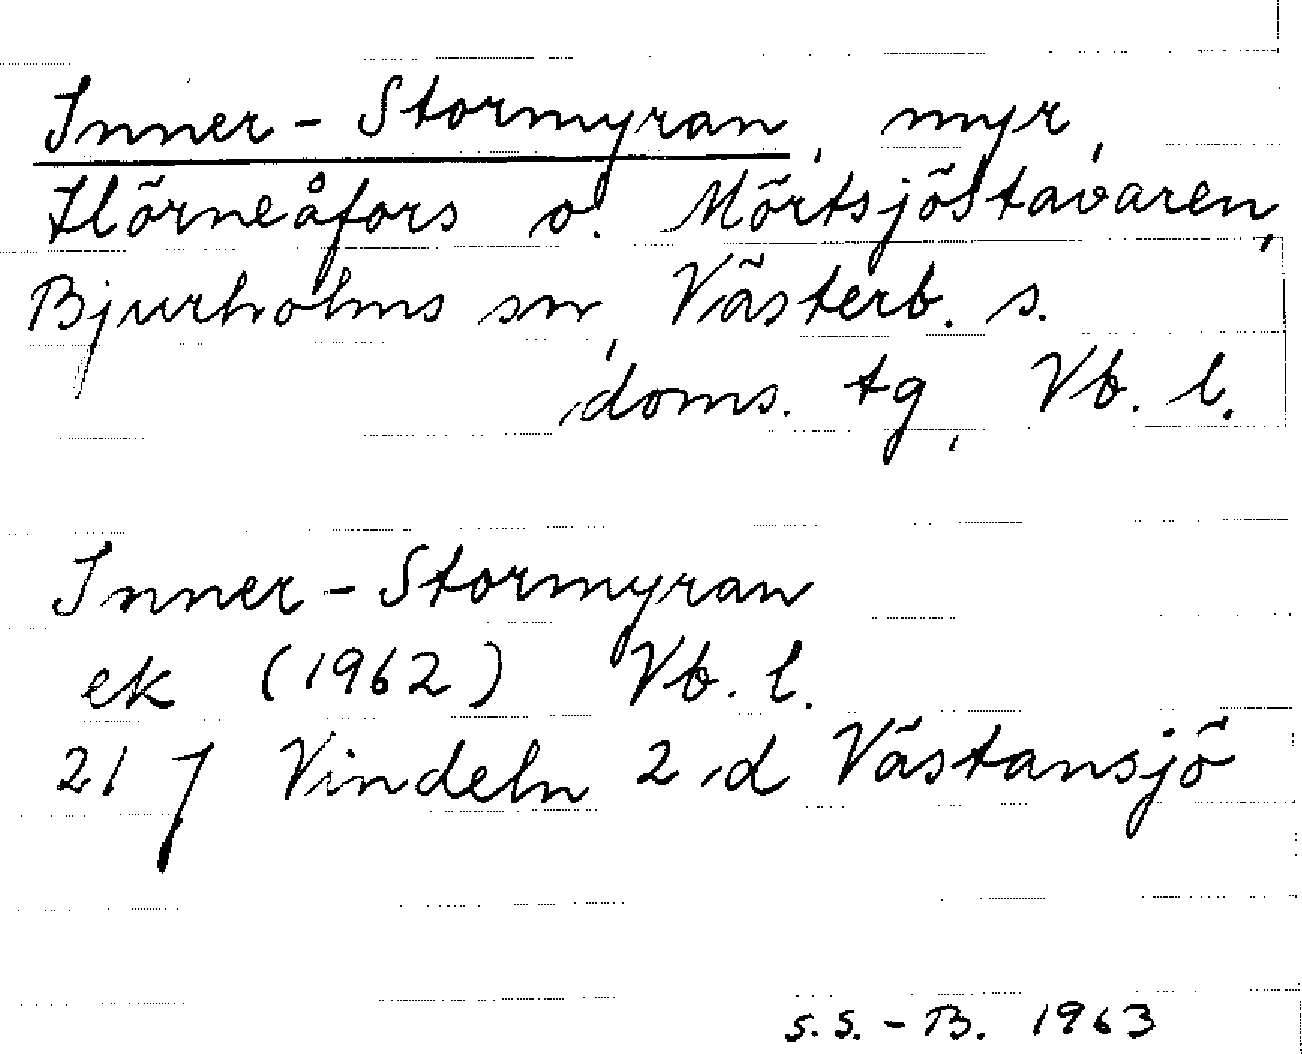 Inner-Stormyran, myr,
Hörneåfors o. Mörtsjöstavaren,
Bjurholms sn, Västerb. s.
doms. tg, Vb. l.
Inner-Stormyran
ek (1962) Vb. l.
21 J Vindeln 2 d Västansjö
S.S.-B. 1963